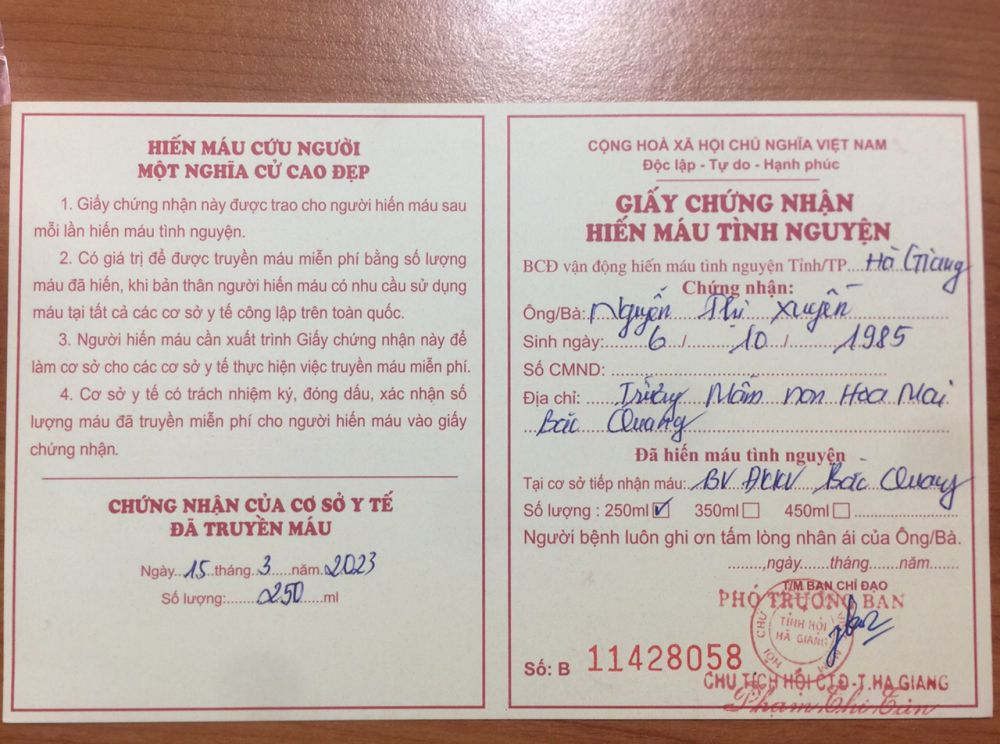 HIẾN MÁU CỨU NGƯỜI
MỘT NGHĨA CỬ CAO ĐẸP
1. Giấy chứng nhận này được trao cho người hiến máu sau
mỗi lần hiến máu tình nguyện.
2. Có giá trị để được truyền máu miễn phí bằng số lượng
máu đã hiến, khi bản thân người hiến máu có nhu cầu sử dụng
máu tại tất cả các cơ sở y tế công lập trên toàn quốc.
3. Người hiến máu cần xuất trình Giấy chứng nhận này để
làm cơ sở cho các cơ sở y tế thực hiện việc truyền máu miễn phí.
4. Cơ sở y tế có trách nhiệm ký, đóng dấu, xác nhận số
lượng máu đã truyền miễn phí cho người hiến máu vào giấy
chứng nhận.
CHỨNG NHẬN CỦA CƠ SỞ Y TẾ
ĐÃ TRUYỀN MÁU
Ngày...15...tháng...3...năm...2023
Số lượng:.......250......ml
CỘNG HOÀ XÃ HỘI CHỦ NGHĨA VIỆT NAM
Độc lập - Tự do - Hạnh phúc
GIẤY CHỨNG NHẬN
HIẾN MÁU TÌNH NGUYỆN
BCĐ vận động hiến máu tình nguyện Tỉnh/TP...Hà Giang
Chứng nhận:
Ông/Bà: Nguyễn Thị Xuyến
Sinh ngày:......6....../......10....../......1985
Số CMND:
Địa chỉ: Trường Mầm non Hoa Mai
Bắc Quang
Đã hiến máu tình nguyện
Tại cơ sở tiếp nhận máu: BV ĐKKV Bắc Quang
Số lượng : 250ml ☑ 350ml ☐ 450ml ☐
Người bệnh luôn ghi ơn tấm lòng nhân ái của Ông/Bà.
........,ngày......tháng......năm......
T/M BAN CHỈ ĐẠO
PHÓ TRƯỞNG BAN
TỈNH HỘI
HÀ GIANG
Số: B 11428058
CHỦ TỊCH HỘI CTĐ-T.HÀ GIANG